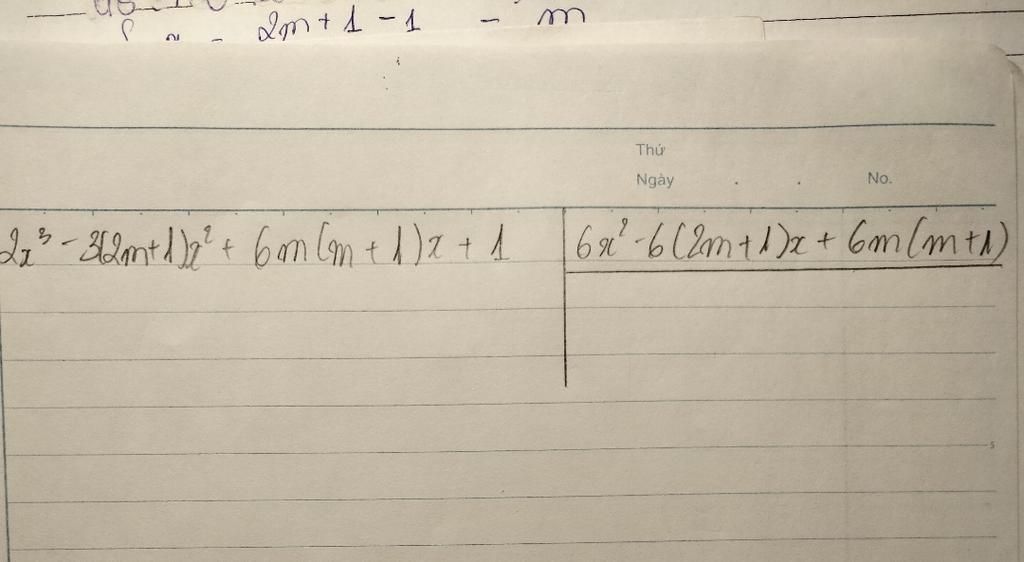 2m+1-1 - m
Thứ
Ngày . . No.
2x³ - 3(2m+1)x² + 6m(m+1)x + 1 6x² - 6(2m+1)x + 6m(m+1)